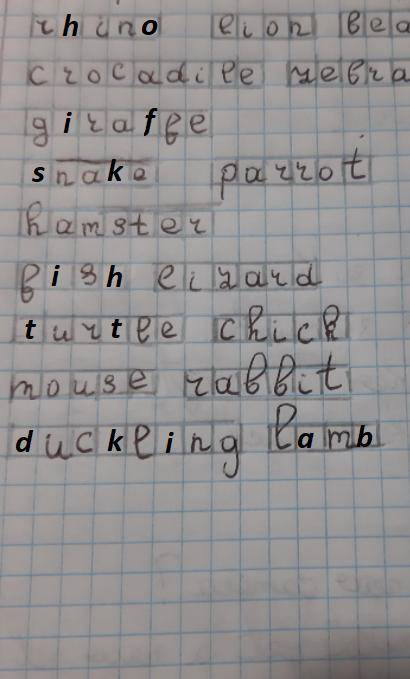 rhino lion bea
crocadile zebra
giraffe
snake parrot
hamster
fish lizard
turtle chick
mouse rabbit
duckling lamb